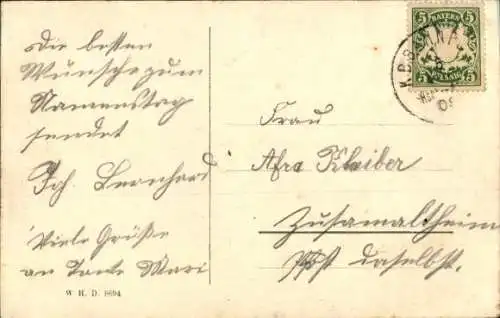 Die besten
Wünsche zum
Namenstag
sendet
Joh. Bernhard
Viele Grüße
an Tante Mari
W. H. D. 8694
5 BAYERN 5
5 PFENNIG 5
Frau
Afra Kleiber
Zusamaltheim
Post daselbst.